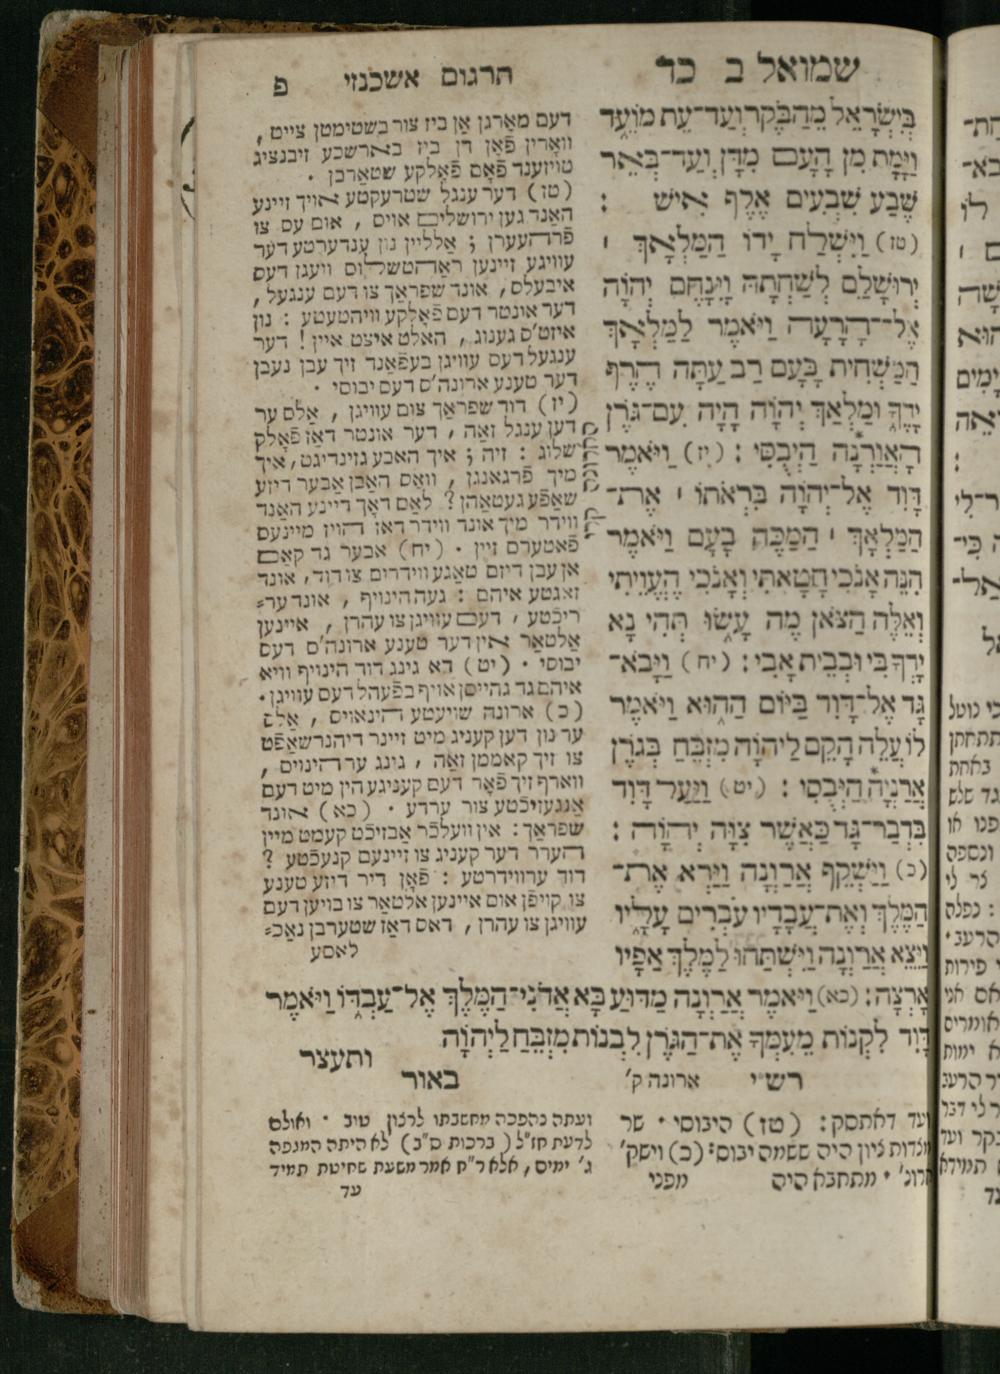 שמואל ב כד
תרגום אשכנזי
פ
בְּיִשְׂרָאֵל מֵהַבֹּקֶר וְעַד־עֵת מוֹעֵד
וַיָּמָת מִן הָעָם מִדָּן וְעַד־בְּאֵר
שֶׁבַע שִׁבְעִים אֶלֶף אִישׁ :
(טז) וַיִּשְׁלַח יָדוֹ הַמַּלְאָךְ ׀
יְרוּשָׁלִַם לְשַׁחֲתָהּ וַיִּנָּחֶם יְהוָֹה
אֶל־הָרָעָה וַיֹּאמֶר לַמַּלְאָךְ
הַמַּשְׁחִית בָּעָם רַב עַתָּה הֶרֶף
יָדֶךָ וּמַלְאַךְ יְהוָֹה הָיָה עִם־גֹּרֶן
הָאֲוַרְנָה הַיְבֻסִי : (יז) וַיֹּאמֶר
דָּוִד אֶל־יְהוָֹה בִּרְאֹתוֹ ׀ אֶת־
הַמַּלְאָךְ ׀ הַמַּכֶּה בָעָם וַיֹּאמֶר
הִנֵּה אָנֹכִי חָטָאתִי וְאָנֹכִי הֶעֱוֵיתִי
וְאֵלֶּה הַצֹּאן מֶה עָשׂוּ תְּהִי נָא
יָדְךָ בִּי וּבְבֵית אָבִי : (יח) וַיָּבֹא־
גָד אֶל־דָּוִד בַּיּוֹם הַהוּא וַיֹּאמֶר
לוֹ עֲלֵה הָקֵם לַיהוָֹה מִזְבֵּחַ בְּגֹרֶן
אֲרַנְיָה הַיְבֻסִי : (יט) וַיַּעַל דָּוִד
בִּדְבַר־גָּד כַּאֲשֶׁר צִוָּה יְהוָֹה :
(כ) וַיַּשְׁקֵף אֲרַוְנָה וַיַּרְא אֶת־
הַמֶּלֶךְ וְאֶת־עֲבָדָיו עֹבְרִים עָלָיו
וַיֵּצֵא אֲרַוְנָה וַיִּשְׁתַּחוּ לַמֶּלֶךְ אַפָּיו
אָרְצָה : (כא) וַיֹּאמֶר אֲרַוְנָה מַדּוּעַ בָּא אֲדֹנִי־הַמֶּלֶךְ אֶל־עַבְדּוֹ וַיֹּאמֶר
דָּוִד לִקְנוֹת מֵעִמְּךָ אֶת־הַגֹּרֶן לִבְנוֹת מִזְבֵּחַ לַיהוָֹה
ותעצר
דעם מאָרגן אן ביז צור בשטימטן צייט ,
וואָרין פֿאָן דן ביז בארשבע זיבנציג
טויזענד פֿאָם פֿאָלקע שטאַרבן .
(טז) דער ענגל שטרעקטע אויך זיינע
האַנד גען ירושלים אויס , אום עס צו
פֿרהעערן ; אַלליין נון ענדערטע דער
עוויגע זיינען ראַהטשלוס וויגן דעס
איבעלס , אונד שפראַך צו דעם ענגעל ,
דער אונטר דעם פֿאָלקע וויהטעטע : נון
איזט'ס גענוג , האַלט איצט איין ! דער
ענגעל דעס עוויגן בעפֿאַנד זיך עבן נעבן
דער טענע ארונה'ס דעס יבוסי .
(יז) דוד שפראַך צום עוויגן , אַלס ער
דען ענגל זאַה , דער אונטר דאַז פֿאָלק
שלוג : זיה ; איך האבע גזינדיגט , איך
מיך פֿרגאַנגן , וואס האַבן אַבער דיזע
שאַפֿע געטאַהן ? לאַס דאָך דיינע האַנד
ווידר מיך אונד ווידר דאז הויז מיינעס
פֿאטערס זיין . (יח) אבער גד קאַם
אן עבן דיזם טאַגע ווידרום צו דוד , אונד
זאַגטע איהם : געה הינויף , אונד ער=
ריכֿטע , דעם עוויגן צו עהרן , איינען
אַלטאַר אין דער טענע ארונה'ס דעס
יבוסי . (יט) דא גינג דוד הינויף וויא
איהם גד גהייסן אויף בפֿעהל דעס עוויגן .
(כ) ארונה שויעטע הינאויס , אַלז
ער נון דען קעניג מיט זיינר דיהנרשאַפֿט
צו זיך קאָממן זאַה , גינג ער הינויס ,
ווארף זיך פֿאָר דעם קעניגע הין מיט דעם
אַנגעזיכֿטע צור ערדע . (כא) אונד
שפראַך : אין וועלכֿר אַבזיכֿט קעמט מיין
הערר דער קעניג צו זיינעם קנעכֿטע ?
דוד ערווידרטע : פֿאָן דיר דיזע טענע
צו קויפֿן אום איינען אלטאַר צו בויען דעם
עוויגן צו עהרן , דאס דאַז שטערבן נאַכ=
לאסע
רש״י
ארונה ק׳
ועד דאתסק : (טז) היבוסי . שר
מצדות ציון היה ששמה יבוס : (כ) וישק׳
ארונ׳ . מתחבא היה מפני
באור
ועתה נהפכה מחשבתו לרצון טוב . ואולם
לדעת חז״ל (ברכות ס״ב) לא היתה המגפה
ג׳ ימים , אלא ר״ח אמר משעת שחיטת תמיד
עד